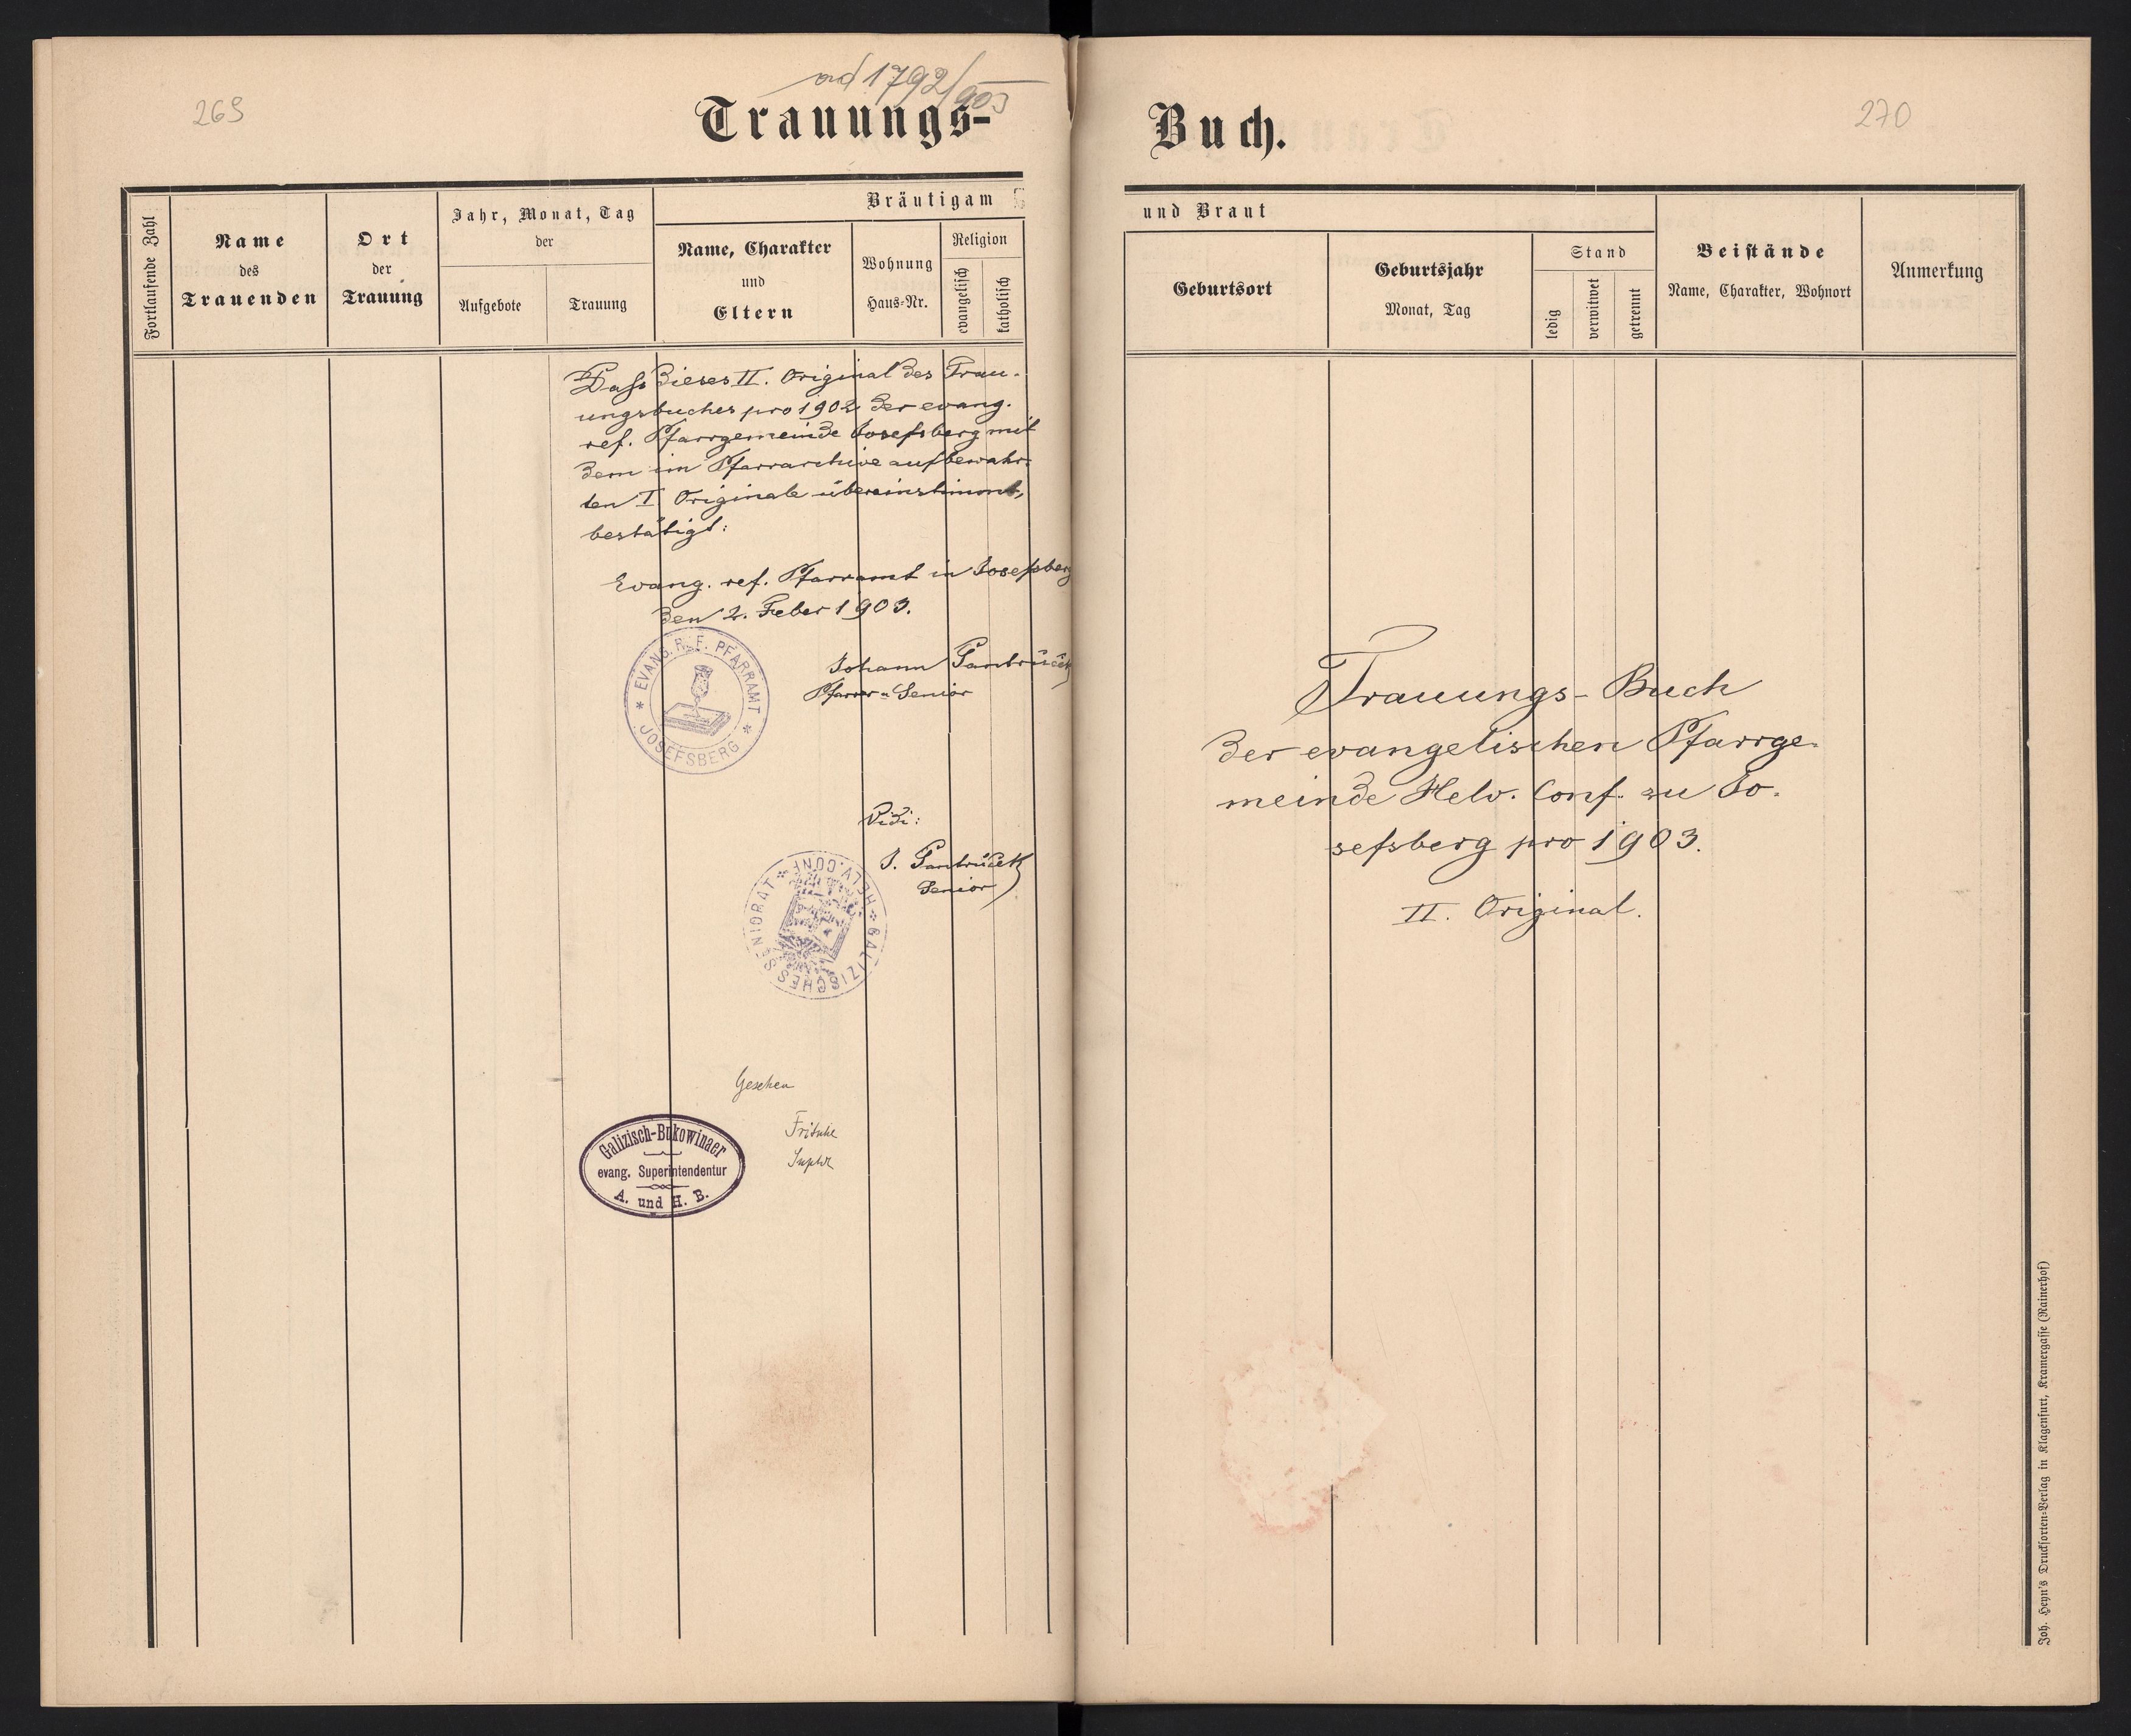 269
ad 1792/903
Trauungs-
Fortlaufende Zahl
Name
des
Trauenden
Ort
der
Trauung
Jahr, Monat, Tag
der
Aufgebote
Trauung
Bräutigam
Name, Charakter
und
Eltern
Wohnung
Haus-Nr.
Religion
evangelisch
katholisch
Dass dieses II. Original des Trau-
ungsbuches pro 1902 der evang.
ref. Pfarrgemeinde Josefsberg mit
dem im Pfarrarchive aufbewahr-
ten I Originale übereinstimmt,
bestätigt:
Evang. ref. Pfarramt in Josefsberg
den 2. Feber 1903.
* EVANG. REF. PFARRAMT *
JOSEFSBERG
Johann
Pfarrer u Senior
Vidi:
J.
Senior
GALIZISCHES SENIORAT * HELV. CONF *
Gesehen
Fritsche
Suptdt
Galizisch-Bukowinaer
evang. Superintendentur
A. und H. B.
270
Buch.
und Braut
Geburtsort
Geburtsjahr
Monat, Tag
Stand
ledig
verwitwet
getrennt
Beistände
Name, Charakter, Wohnort
Anmerkung
Trauungs-Buch
der evangelischen Pfarrge-
meinde Helv. Conf. zu Jo-
sefsberg pro 1903.
II. Original.
Joh. Heyn's Drucksorten-Verlag in Klagenfurt, Kramergasse (Rainerhof)